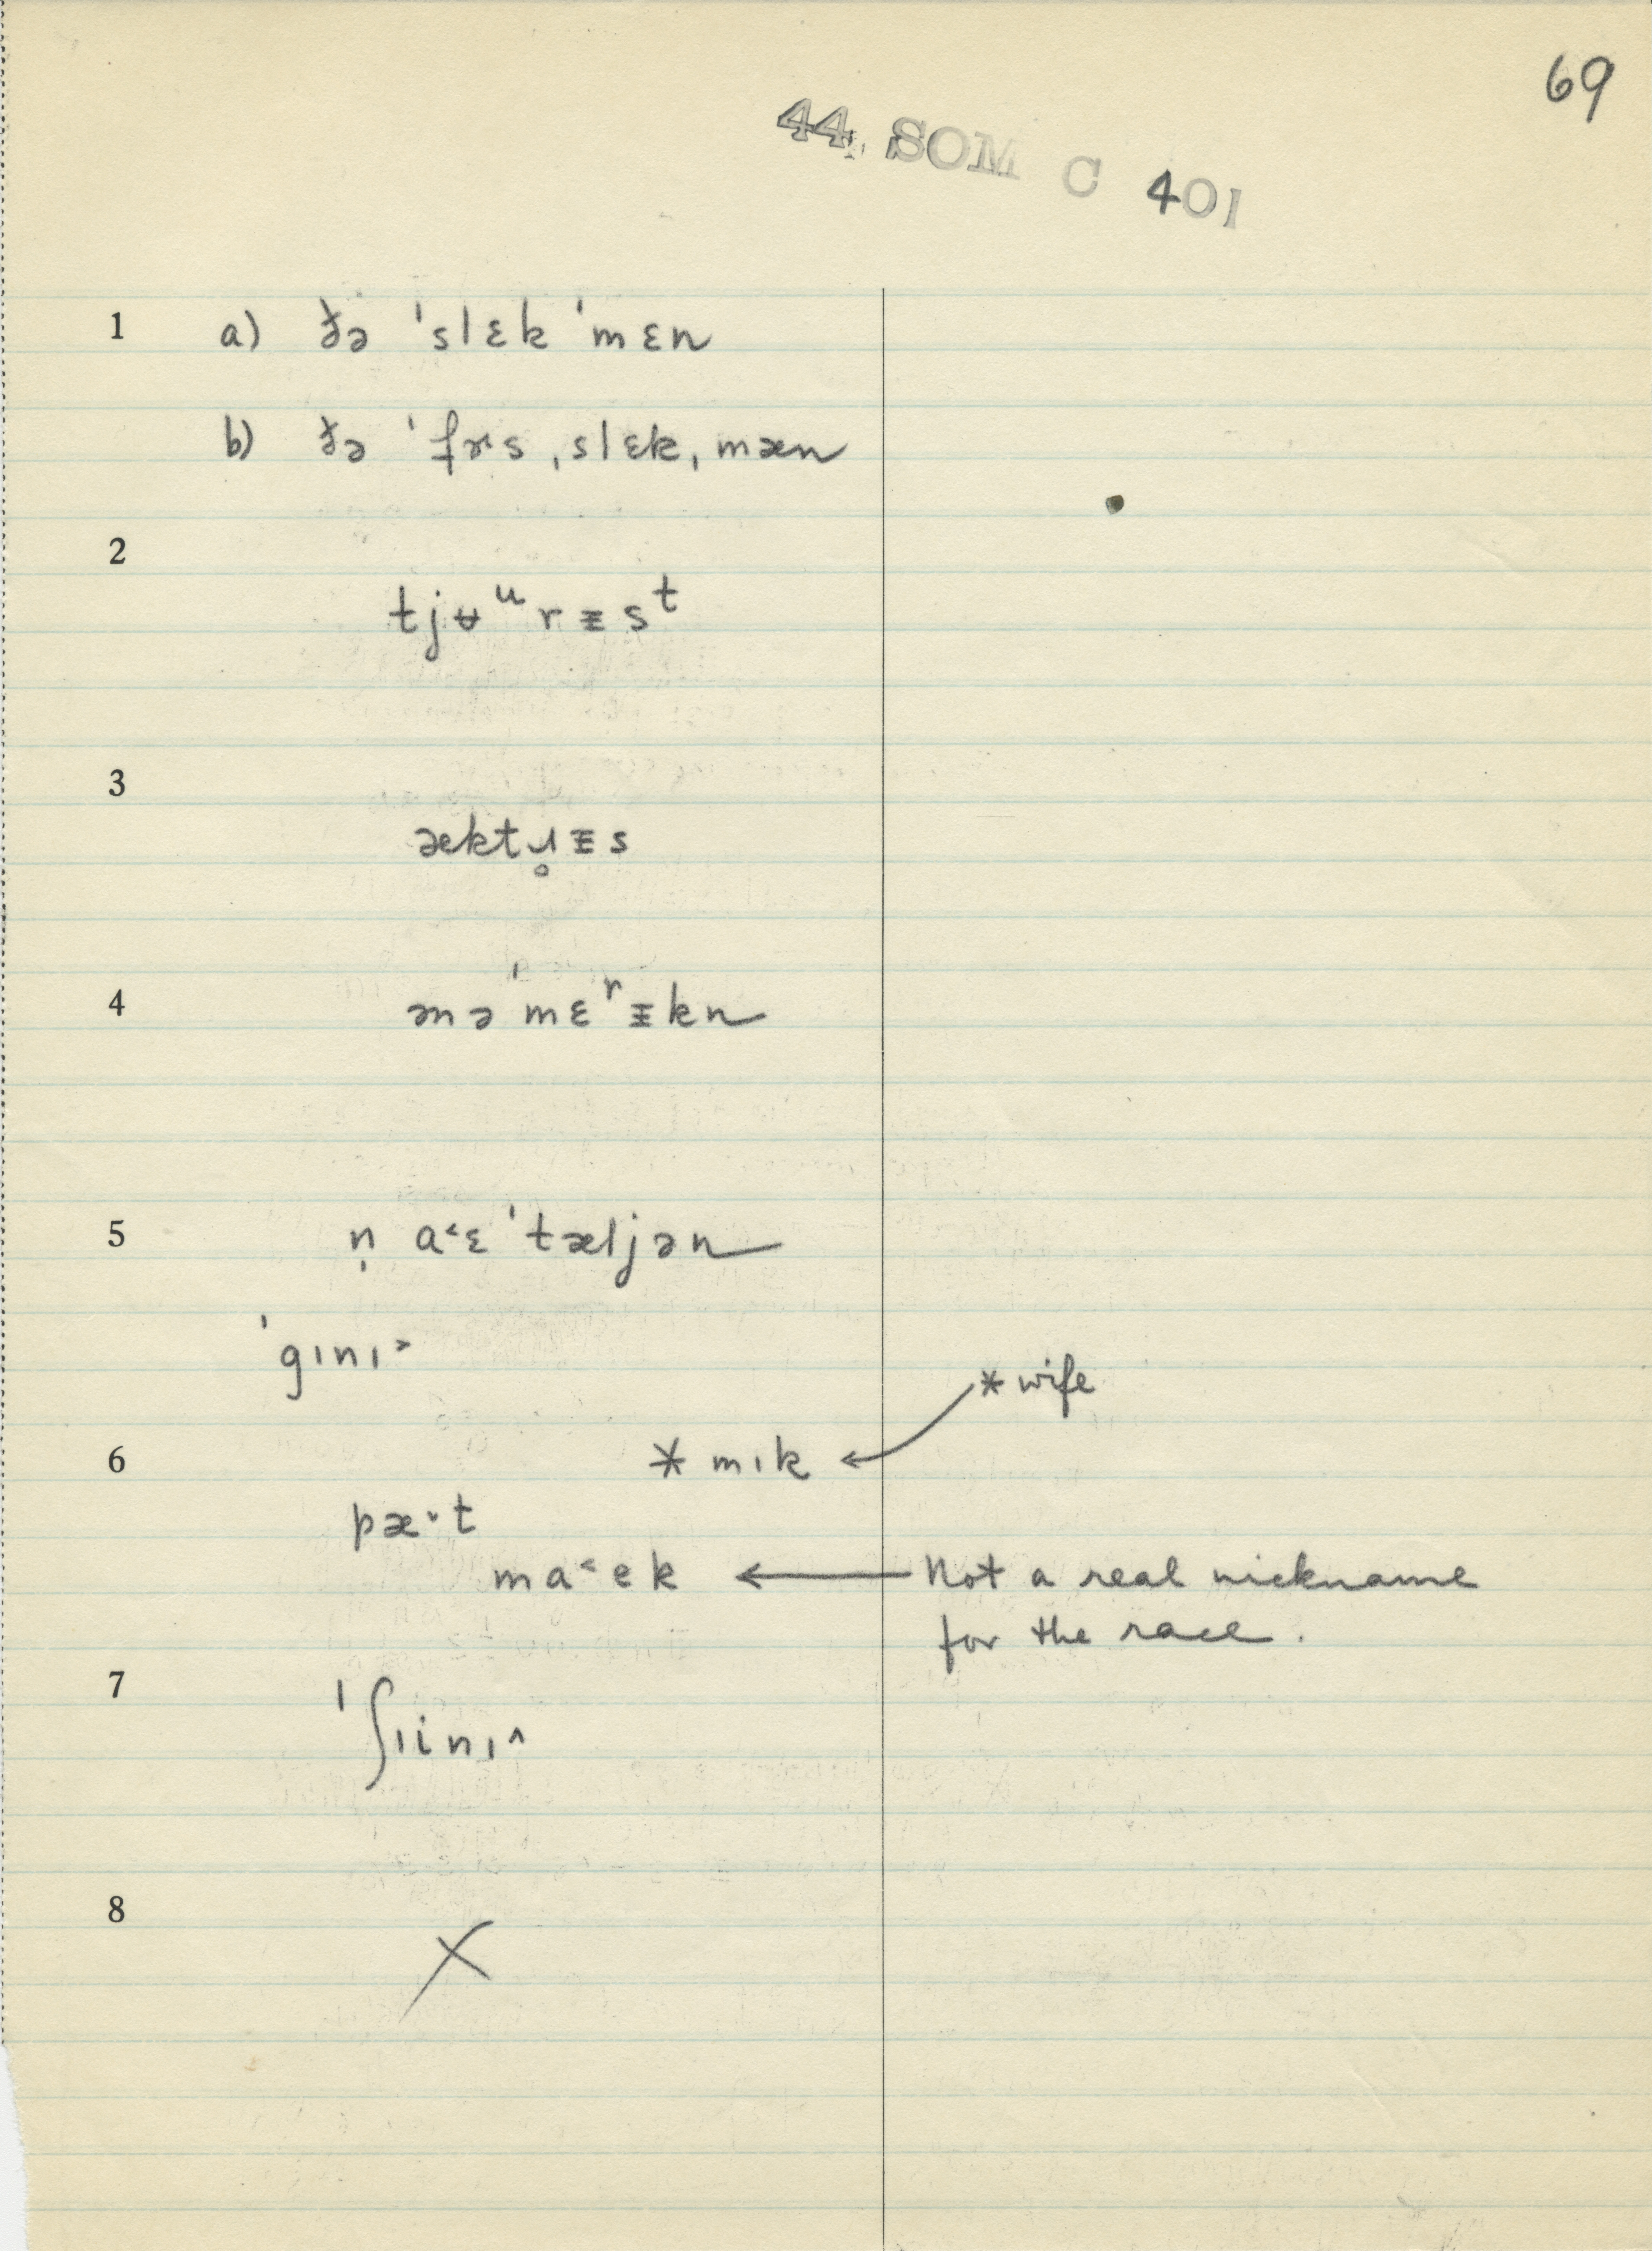 69
44. SOM C 401
1 a) ðə ˈslɛk ˈmɛn
b) ðə ˈfɝs ˌslɛk ˌmæn
2
tjʉᵘrᵻsᵗ
3
æktɹ̥ᵻs
4 ənəˈmɛʳᵻkn
5 n̩ a˂ɛˈtæljən
ˈgɪnɪ˃
* wife
6 * mɪk ←
pæ˅t
ma˂ek ← Not a real nickname
for the race.
7
ˈʃɪinɪ^
8
X